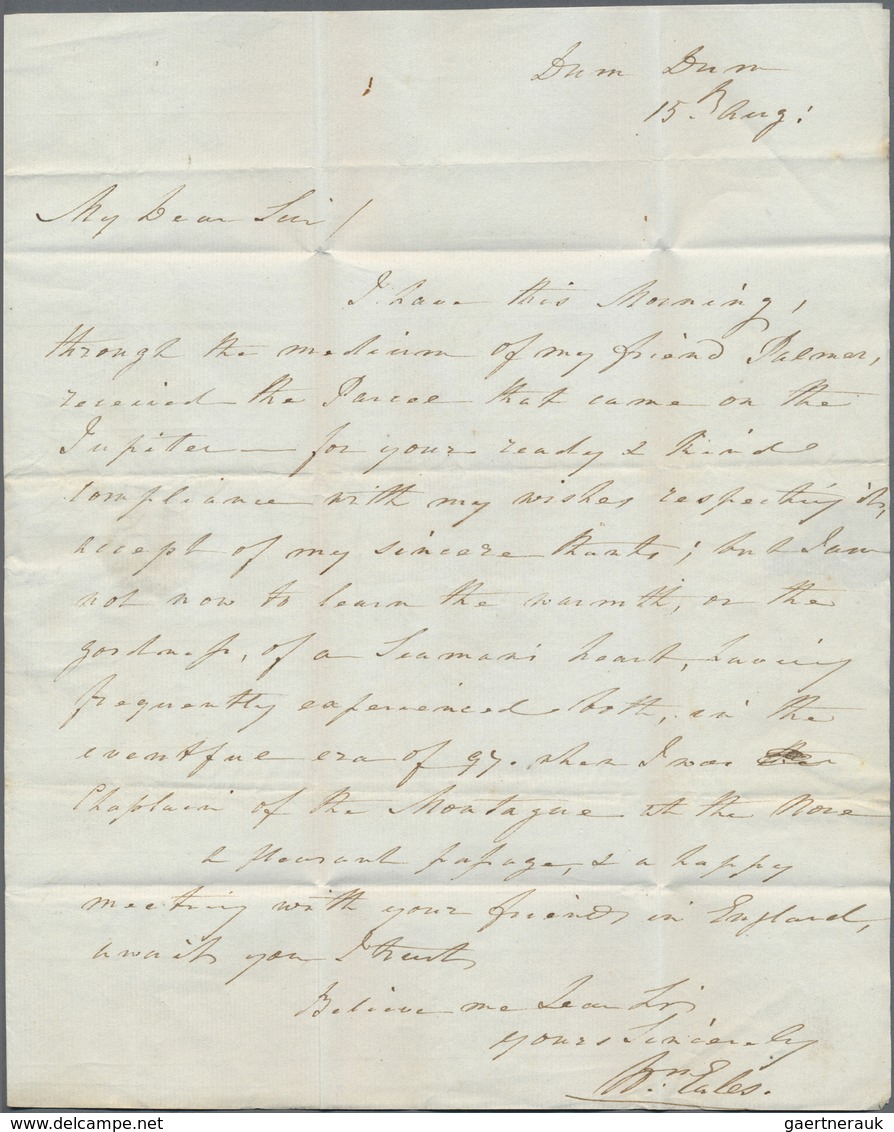 Dum Dum
15th Aug:
My Dear Sir /
I have this Morning,
through the medium of my friend Palmer,
received the Parcel that came on the
Jupiter — for your ready & kind
compliance with my wishes respecting it,
accept of my sincere thanks; but I am
not now to learn the warmth, or the
goodness, of a Seaman's heart, having
frequently experienced both, in the
eventful era of 97. when I was
Chaplain of the Montague at the Nore
A pleasant passage, & a happy
meeting with your friends in England,
await you I trust
Believe me Dear Sir
yours Sincerely
Wm. Eales.
delcampe.net
gaertnerauk